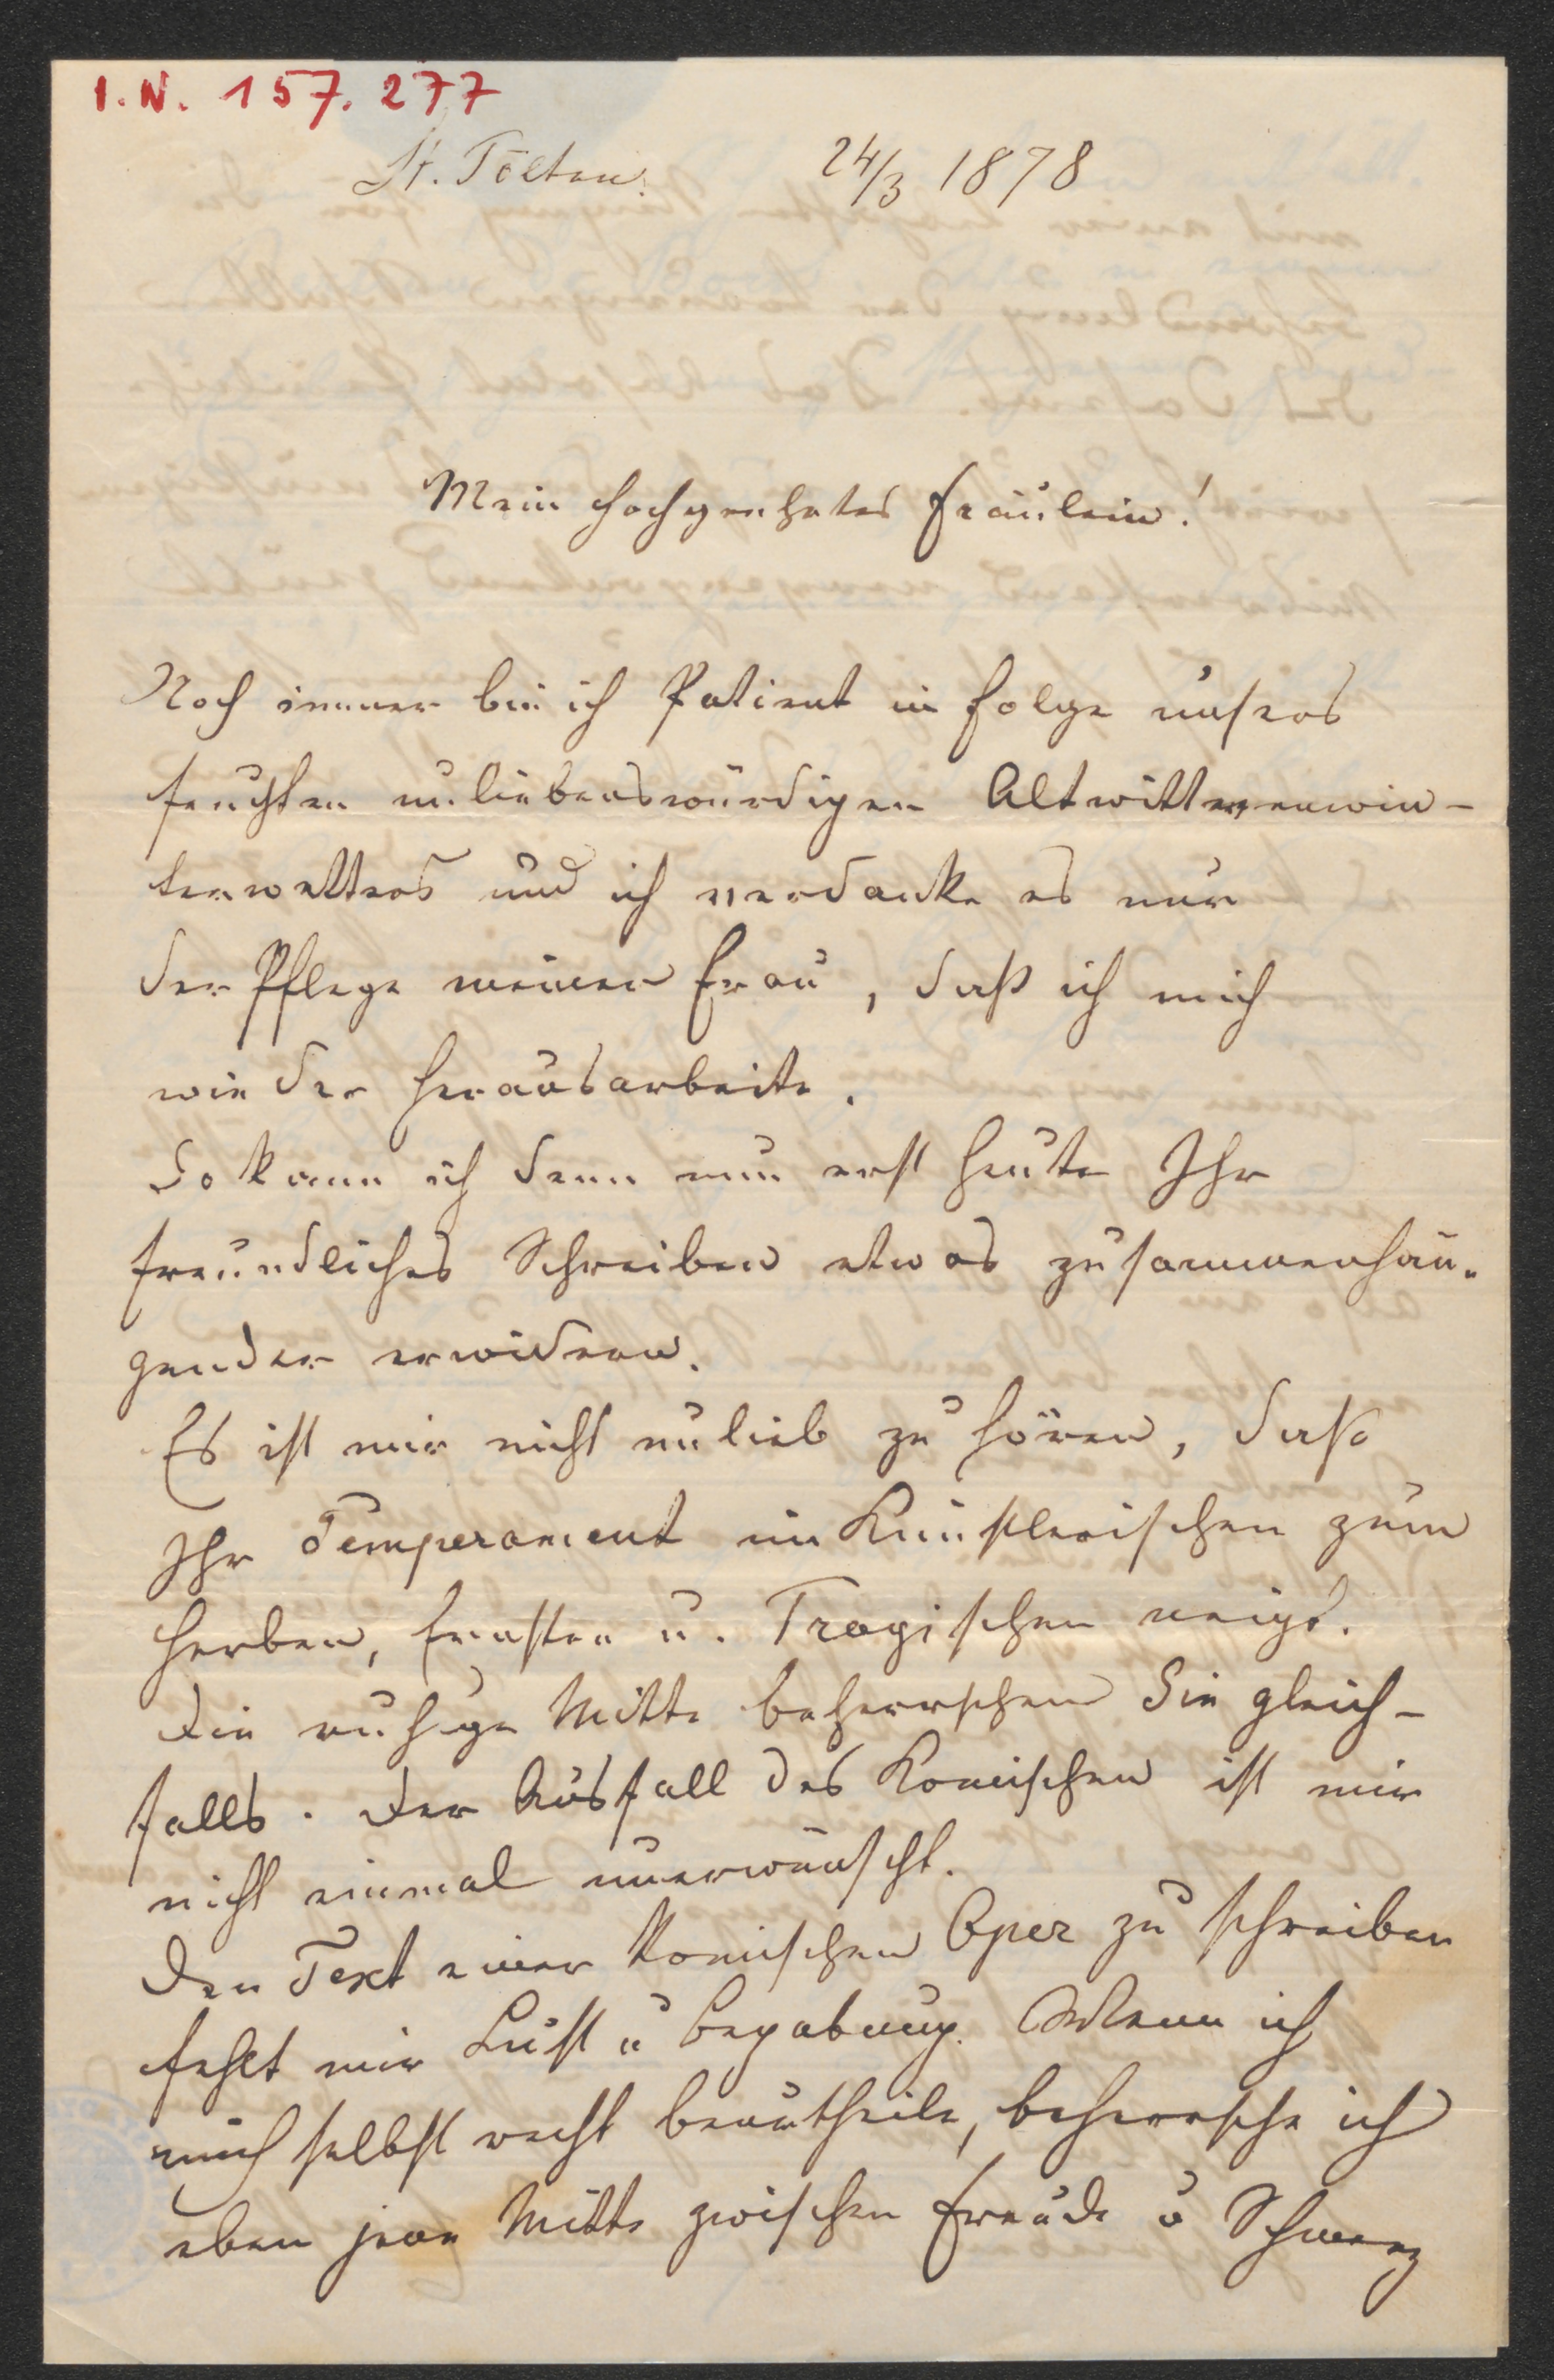 I. N. 157.277
St. Pölten. 24/3 1878
Mein hochgeehrtes Fräulein!
Noch immer bin ich Patient in Folge unsers
feuchten unliebenswürdigen Altweiberwin-
terwetters und ich verdanke es nur
der Pflege meiner Frau, daß ich mich
wieder herausarbeite.
So kann ich denn nun erst heute Ihr
freundliches Schreiben etwas zusammenhän-
gender erwidern.
Es ist mir nicht unlieb zu hören, daß
Ihr Temperament im Künstlerischen zum
Herben, Ernsten u. Tragischen neigt.
Die ruhige Mitte beherrschen Sie gleich-
falls. Der Ausfall des Komischen ist mir
nicht einmal unerwünscht.
Den Text einer komischen Oper zu schreiben
fehlt mir Lust u Begabung. Wenn ich
mich selbst recht beurtheile, beherrsche ich
eben jene Mitte zwischen Freude u Schmerz